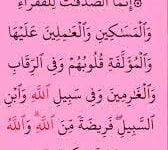 ۞ إِنَّمَا ٱلصَّدَقَٰتُ لِلْفُقَرَآءِ
وَٱلْمَسَٰكِينِ وَٱلْعَٰمِلِينَ عَلَيْهَا
وَٱلْمُؤَلَّفَةِ قُلُوبُهُمْ وَفِى ٱلرِّقَابِ
وَٱلْغَٰرِمِينَ وَفِى سَبِيلِ ٱللَّهِ وَٱبْنِ
ٱلسَّبِيلِۖ فَرِيضَةً مِّنَ ٱللَّهِۗ وَٱللَّهُ